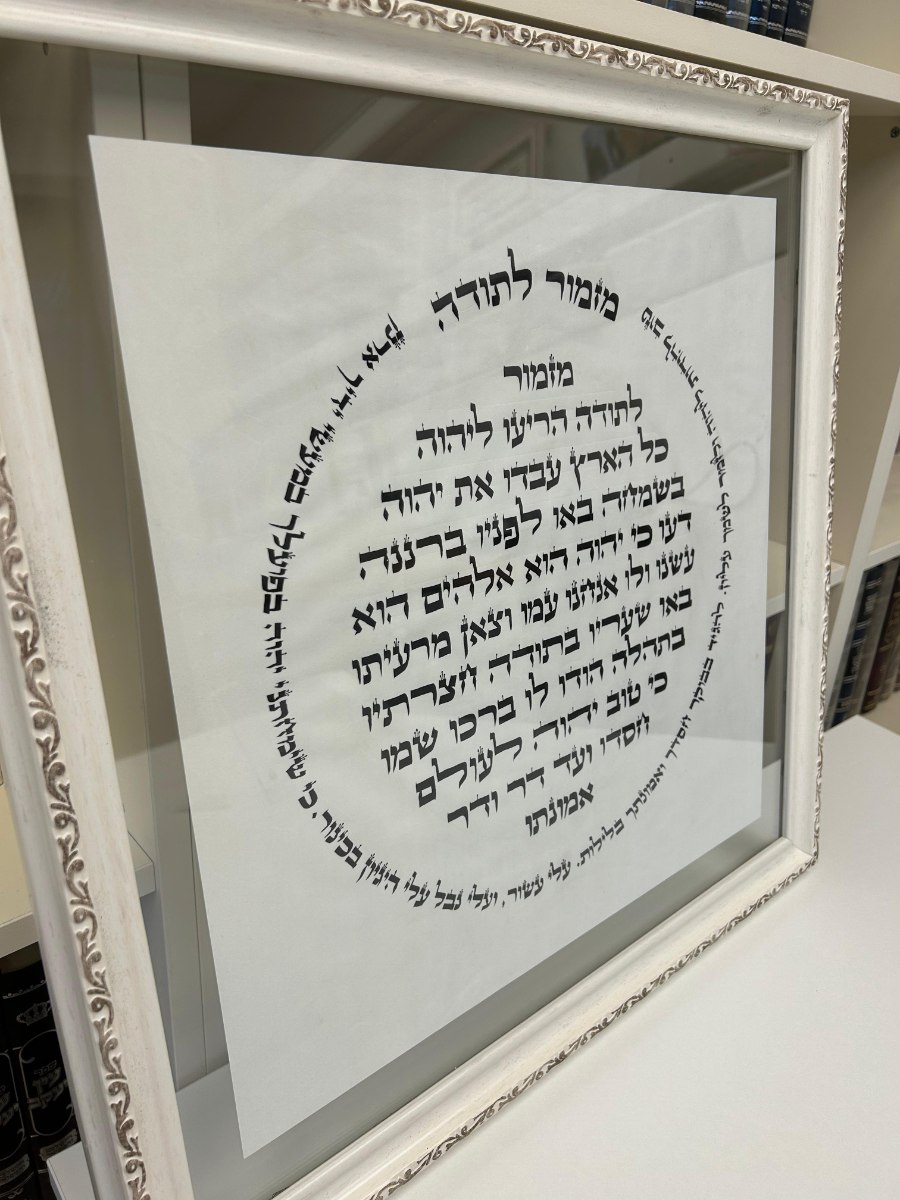 מזמור לתודה
מזמור
לתודה הריעו ליהוה
כל הארץ עבדו את יהוה
בשמחה באו לפניו ברננה
דעו כי יהוה הוא אלהים הוא
עשנו ולו אנחנו עמו וצאן מרעיתו
באו שעריו בתודה חצרתיו
בתהלה הודו לו ברכו שמו
כי טוב יהוה לעולם
חסדו ועד דר ודר
אמונתו
טוב להודות ליהוה ולזמר לשמך עליון. להגיד בבוקר חסדך ואמונתך בלילות. עלי עשור, ועלי נבל עלי הגיון בכינור. כי שימחתני יהוה בפועלך במעשי ידיך ארנן